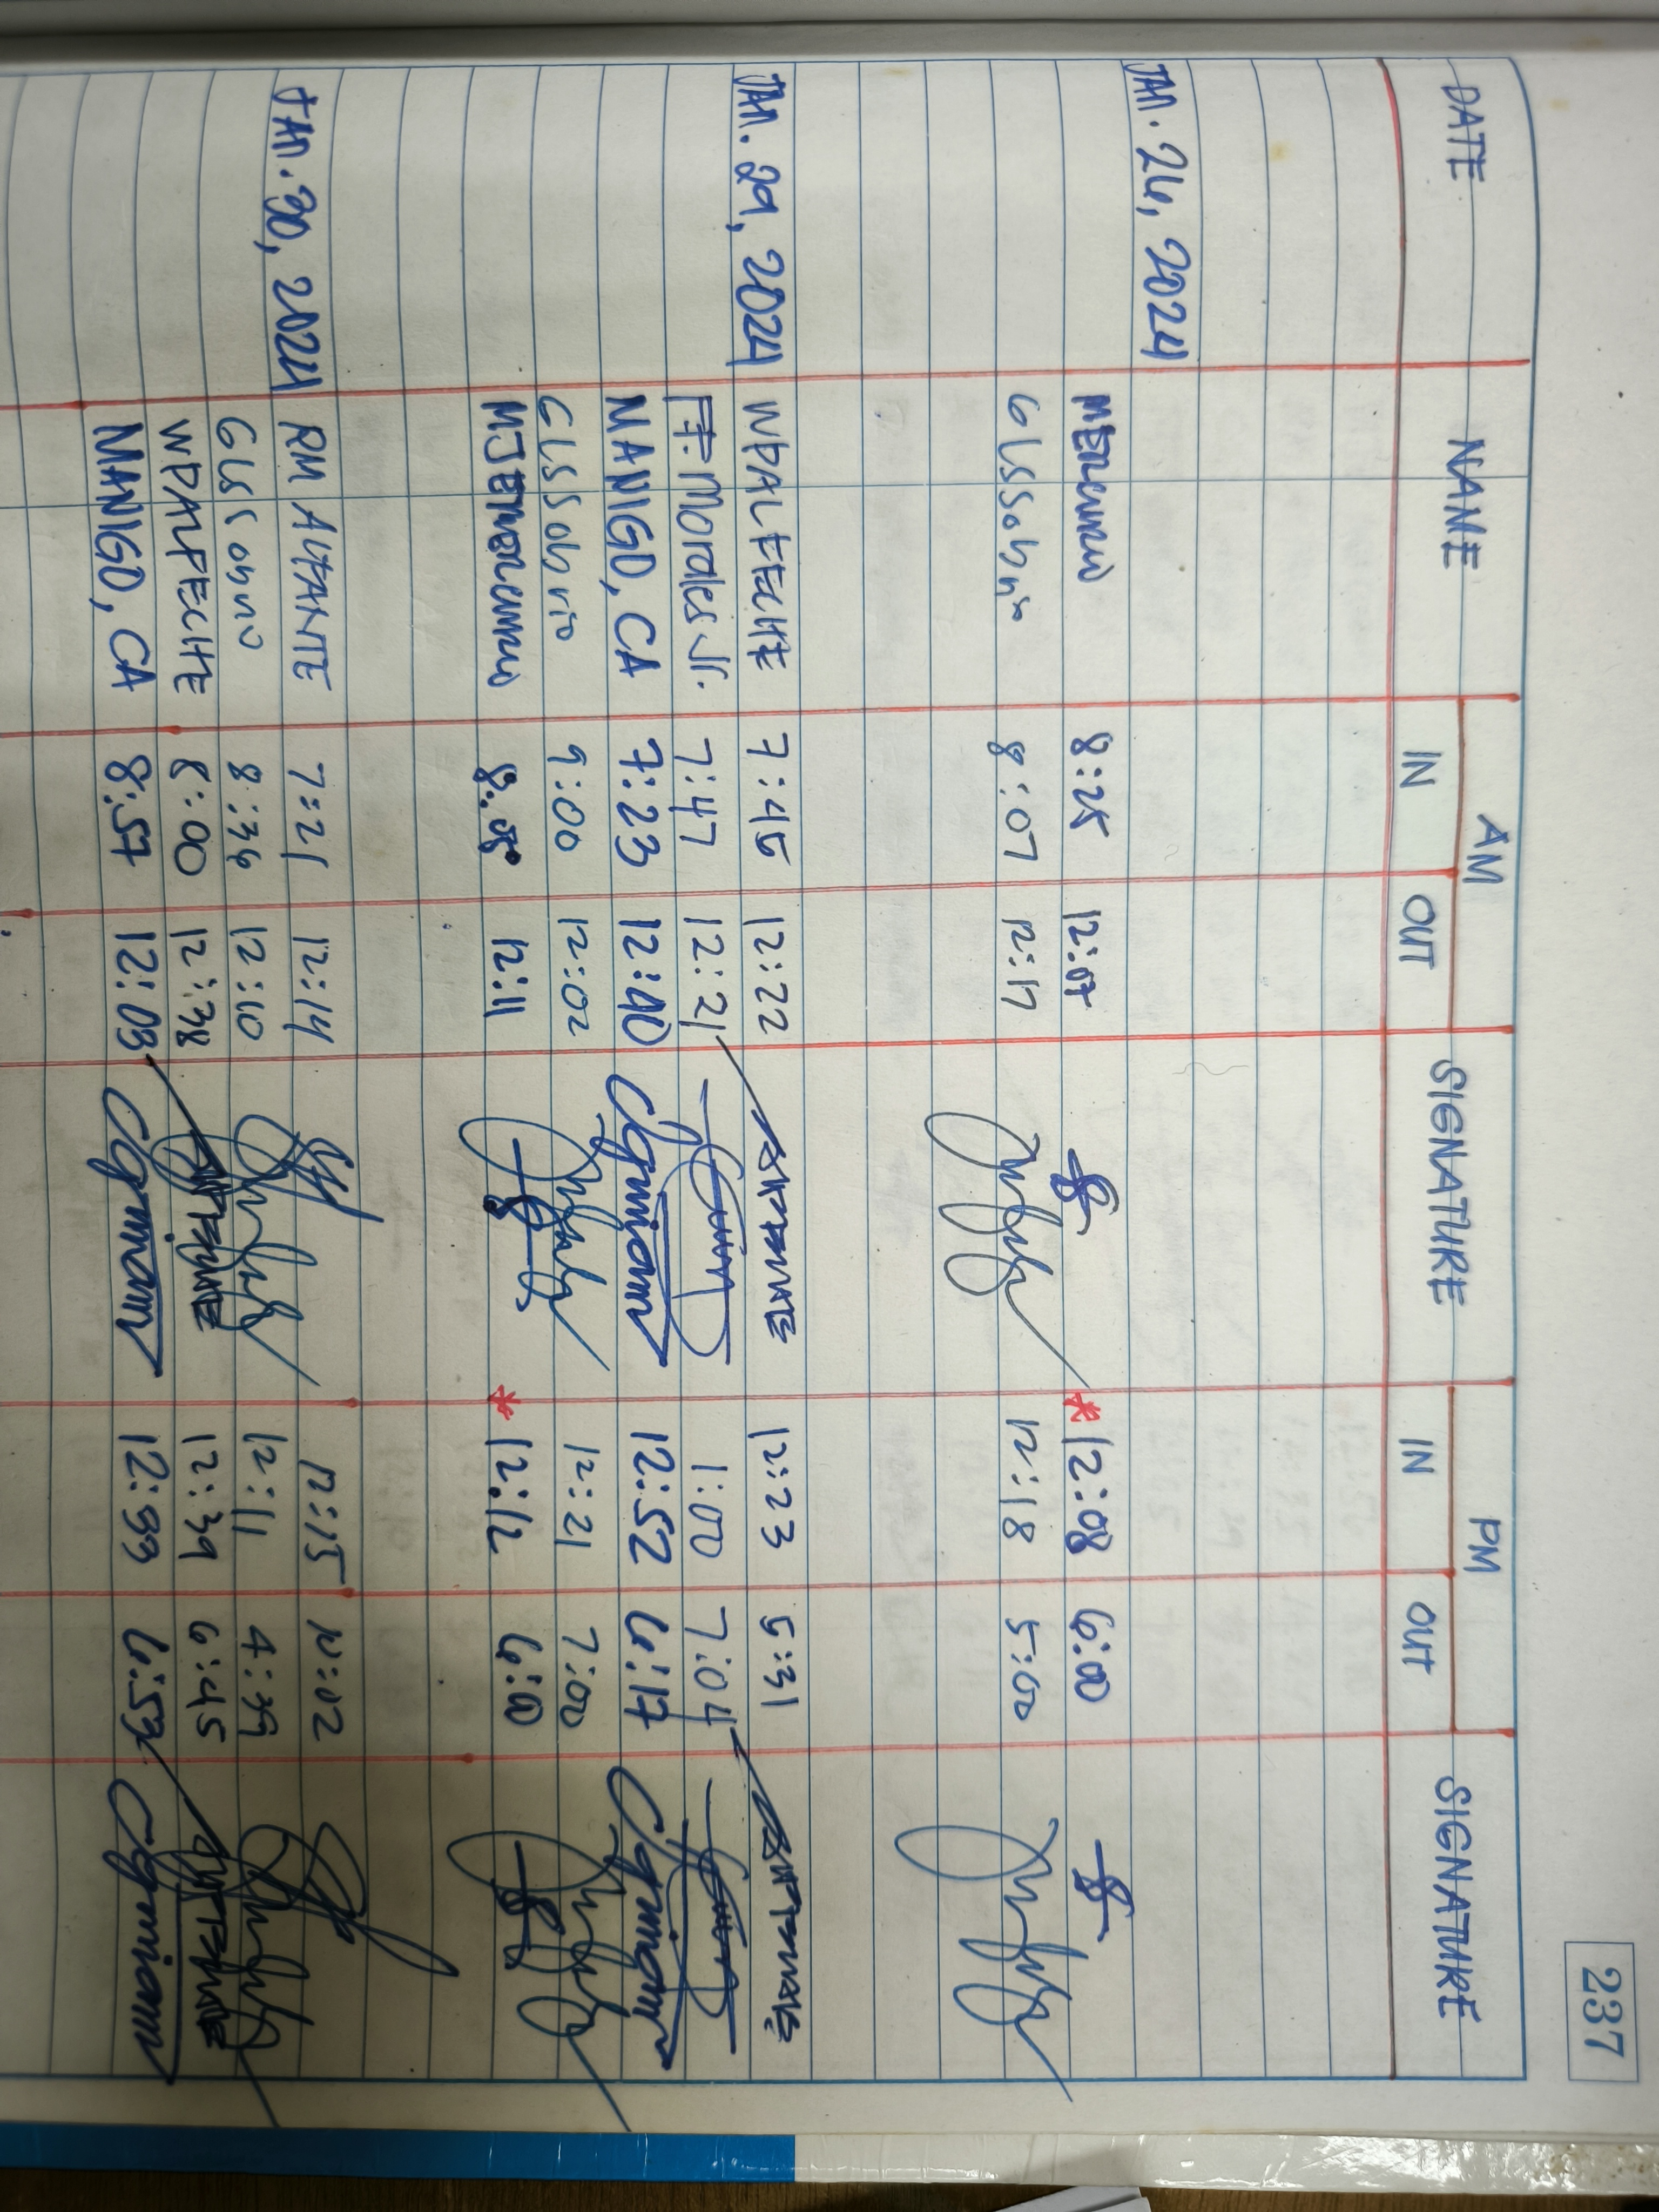 237
DATE NAME AM SIGNATURE PM SIGNATURE
IN OUT IN OUT
JAN. 26, 2024
8:25 12:07 * 12:08 6:00
GLSSobrio 8:07 12:17 12:18 5:00
JAN. 29, 2024 WPALFECHE 7:45 12:22 12:23 5:31
FF. Morales Jr. 7:47 12:21 1:00 7:04
MANIGO, CA 7:23 12:40 12:52 6:17
GLSSobrio 9:00 12:02 12:21 7:00
12:11 * 12:12 6:00
JAN. 30, 2024 RM 7:21 12:14 12:15
GLSSobrio 8:36 12:10 12:11 4:39
WPALFECHE 8:00 12:38 12:39 6:45
MANIGO, CA 8:57 12:03 6:53